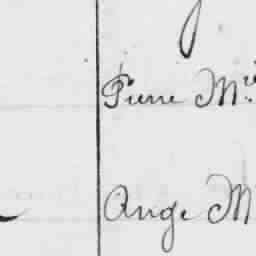 Pierre M.ie
Ange M